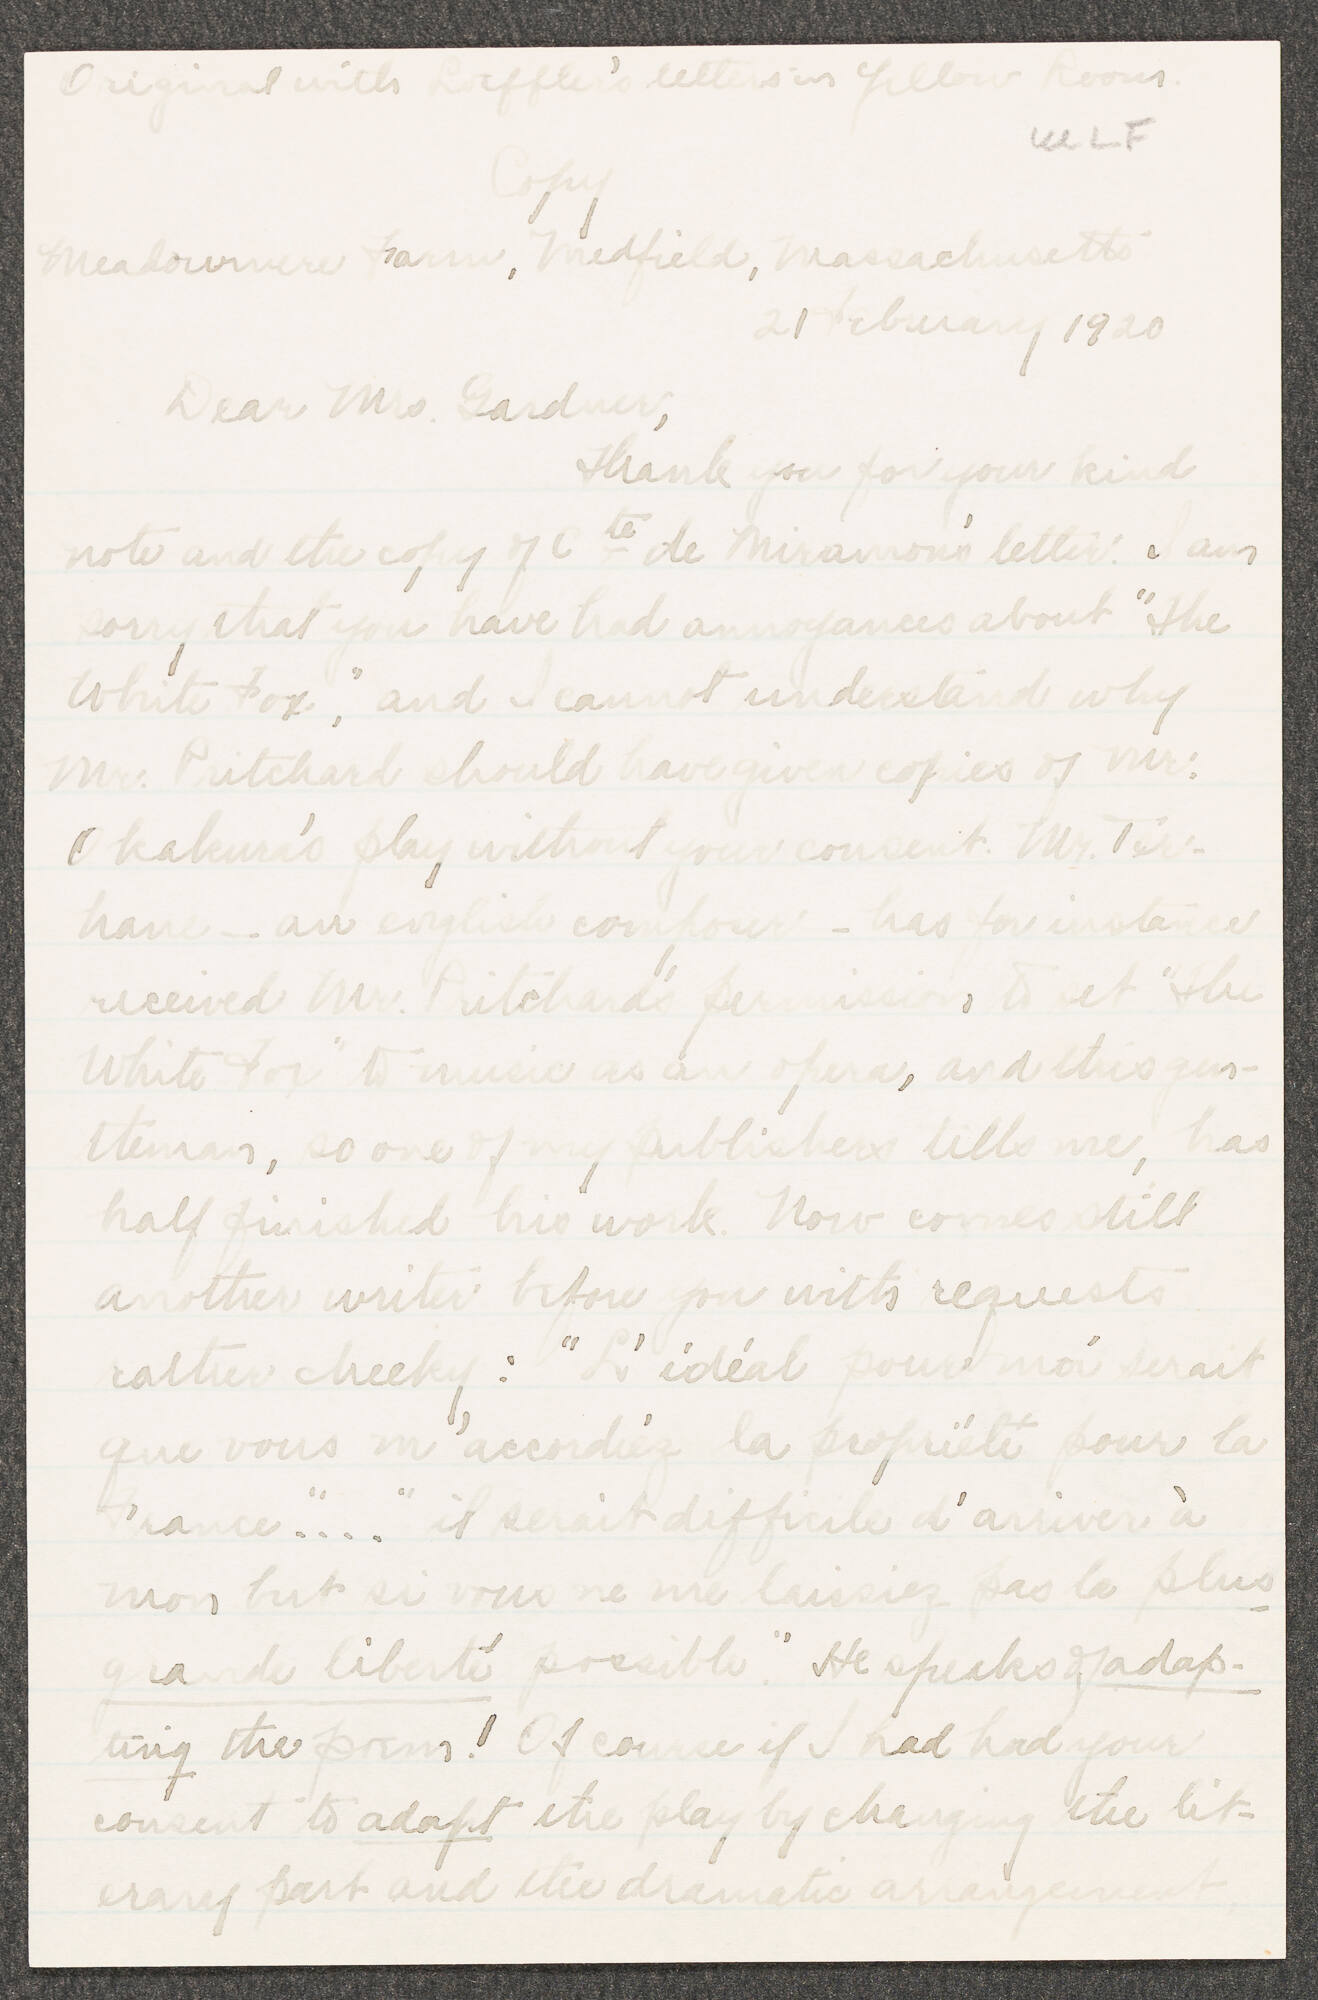 Original with Loeffler's letters in Yellow Room.
MLF
Copy
Meadowmere Farm, Medfield, Massachusetts
21 February 1920
Dear Mrs. Gardner,
Thank you for your kind
note and the copy of Cte de Miramon's letter. I am
sorry that you have had annoyances about "The
White Fox," and I cannot understand why
Mr. Pritchard should have given copies of Mr.
Okakura's play without your consent. Mr. Ter-
hane - an english composer - has for instance
received Mr. Pritchard's permission to set "The
White Fox" to music as an opera, and this gen-
tleman, so one of my publishers tells me, has
half finished his work. Now comes still
another writer before you with requests
rather cheeky: "L'idéal pour moi serait
que vous m'accordiéz la propriété pour la
France"...."il serait difficile d'arriver à
mon but si vous ne me laissiez pas la plus
grande liberté possible." He speaks of adap-
ting the poem! Of course if I had had your
consent to adapt the play by changing the lit-
erary part and the dramatic arrangement,